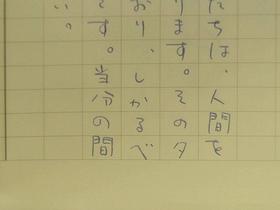 たちは、人間タを
ります。その夕
おり、しかるべ
です。当分の間
い。